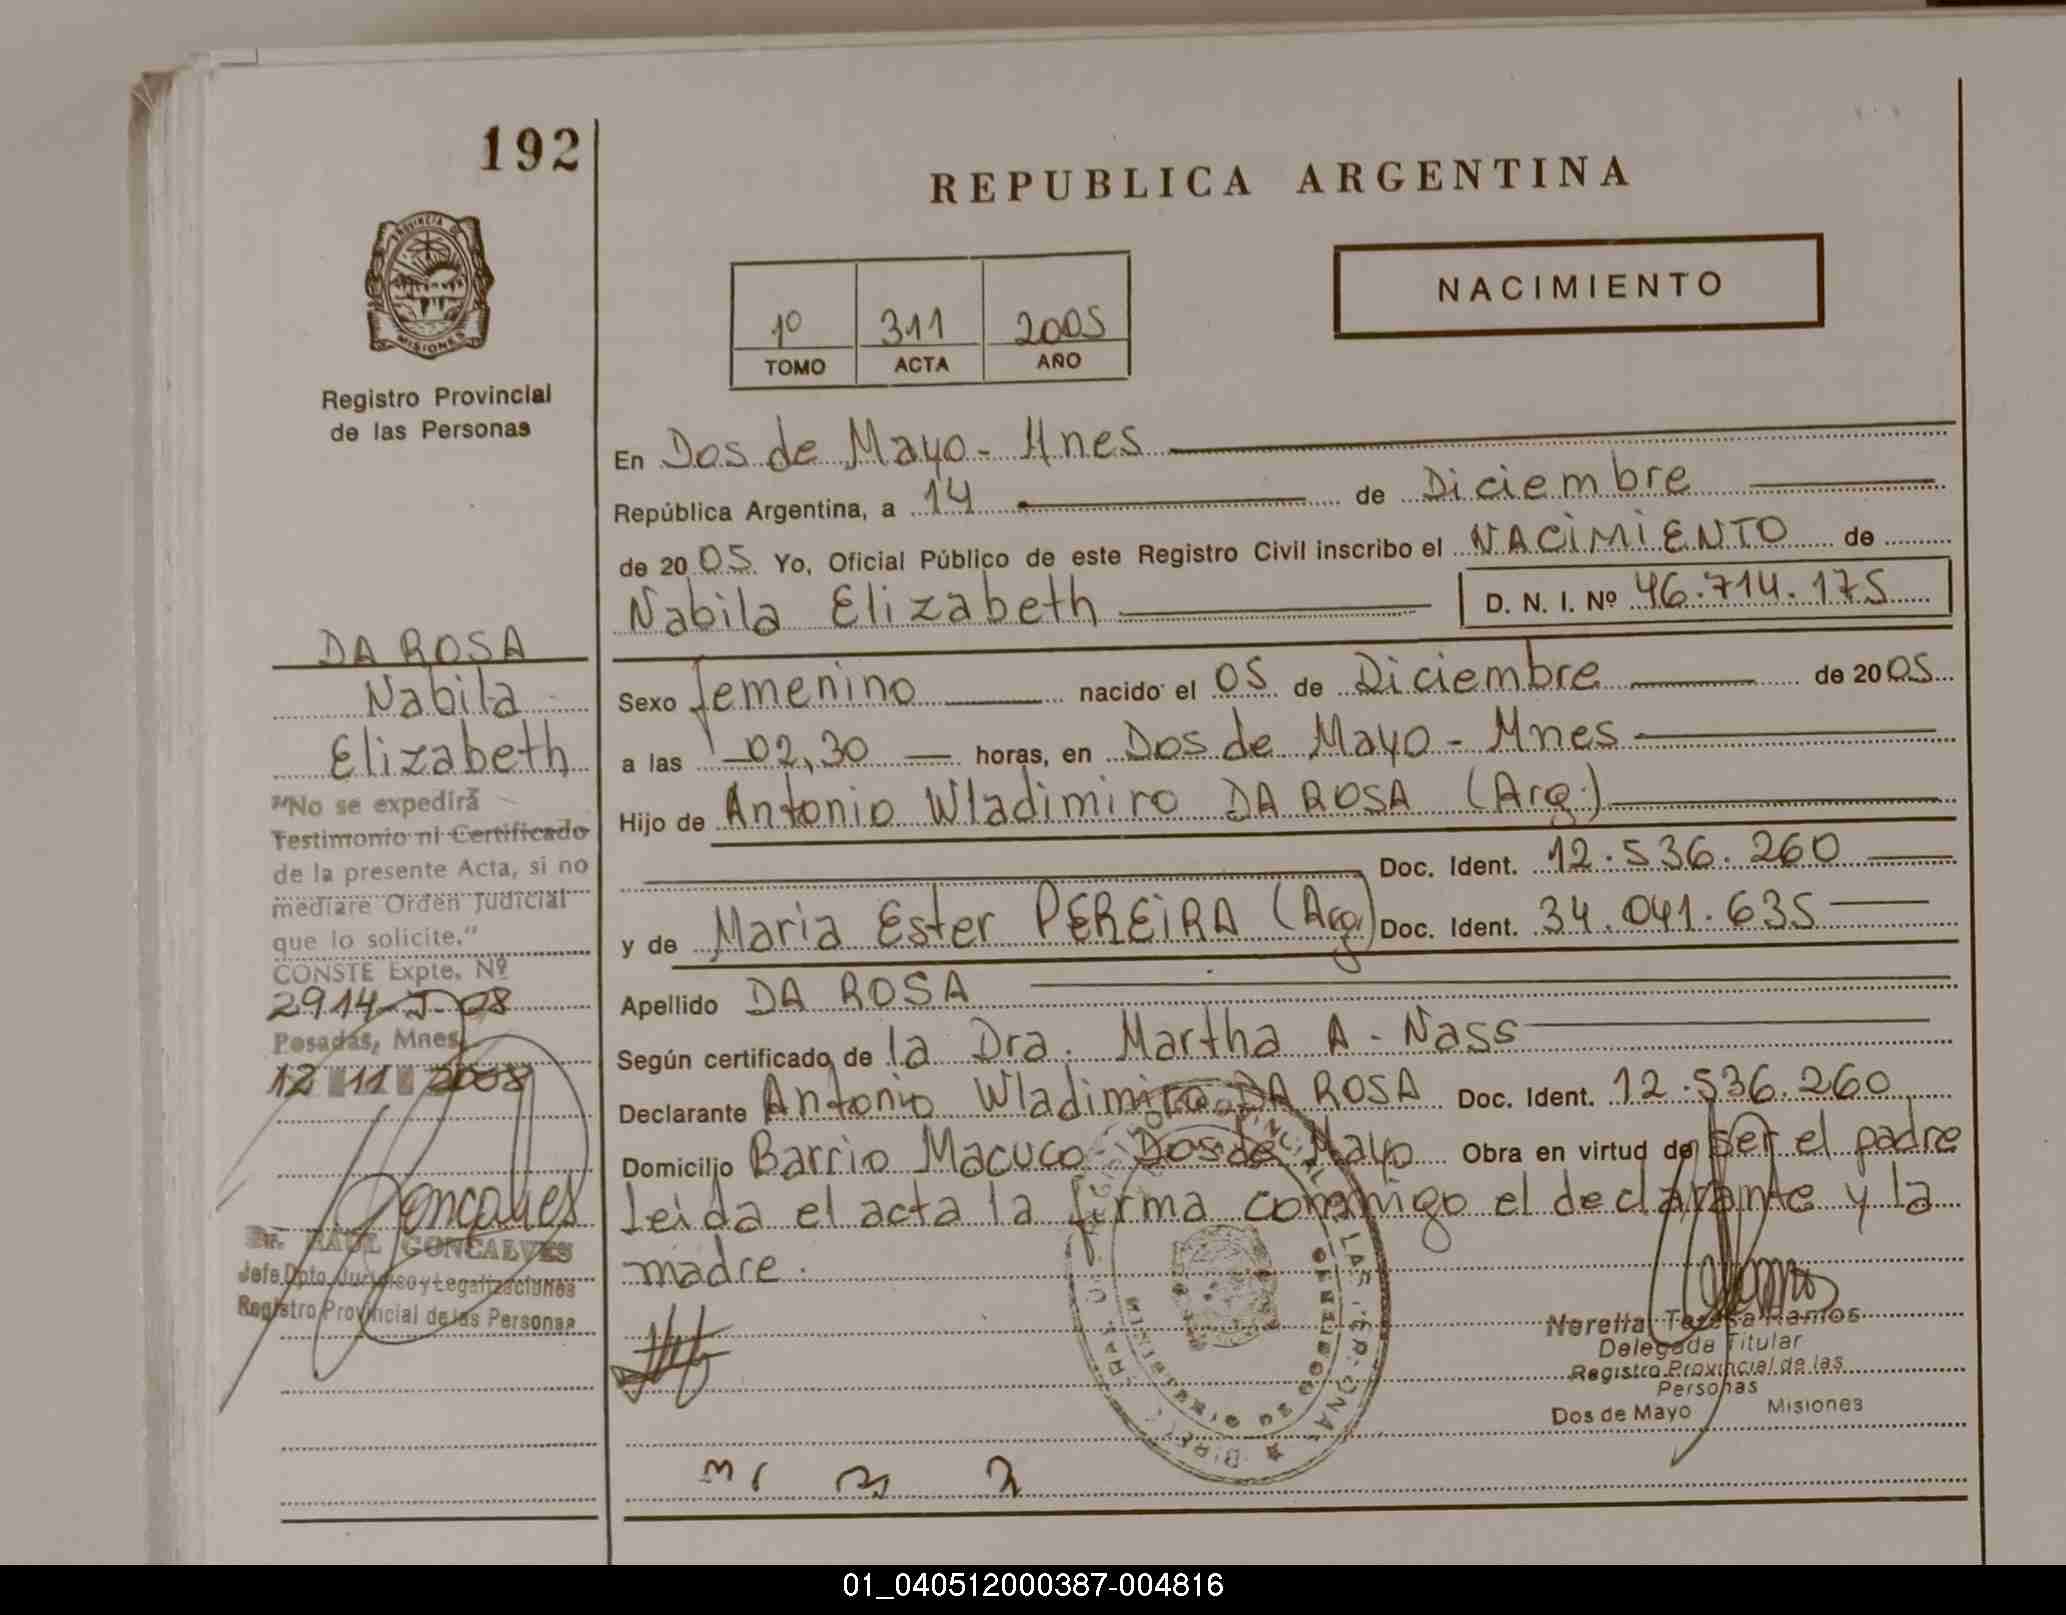 192
REPUBLICA ARGENTINA
PROVINCIA D
MISIONES
NACIMIENTO
1º 311 2005
TOMO ACTA AÑO
Registro Provincial
de las Personas
En Dos de Mayo - Mnes
República Argentina, a 14 de Diciembre
de 2005 Yo, Oficial Público de este Registro Civil inscribo el NACIMIENTO de
Nabila Elizabeth D. N. I. Nº 46.714.175
DA ROSA
Nabila
Elizabeth
"No se expedirá
Testimonio ni Certificado
de la presente Acta, si no
mediare Orden Judicial
que lo solicite."
CONSTE Expte. Nº
2914-J-08
Posadas, Mnes
12 11 2008
Goncalves
Dr. RAUL GONCALVES
Jefe Dpto. Jurídico y Legalizaciones
Registro Provincial de las Personas
Sexo femenino nacido el 05 de Diciembre de 2005
a las 02,30 horas, en Dos de Mayo - Mnes
Hijo de Antonio Wladimiro DA ROSA (Arg.)
Doc. Ident. 12.536.260
y de Maria Ester PEREIRA (Arg.) Doc. Ident. 34.041.635
Apellido DA ROSA
Según certificado de la Dra. Martha A - Nass
Declarante Antonio Wladimiro DA ROSA Doc. Ident. 12.536.260
Domicilio Barrio Macuco - Dos de Mayo Obra en virtud de ser el padre
leida el acta la firma conmigo el declarante y la
madre.
Nerella Teresa Ramos
Delegada Titular
Registro Provincial de las
Personas
Dos de Mayo Misiones
01_040512000387-004816